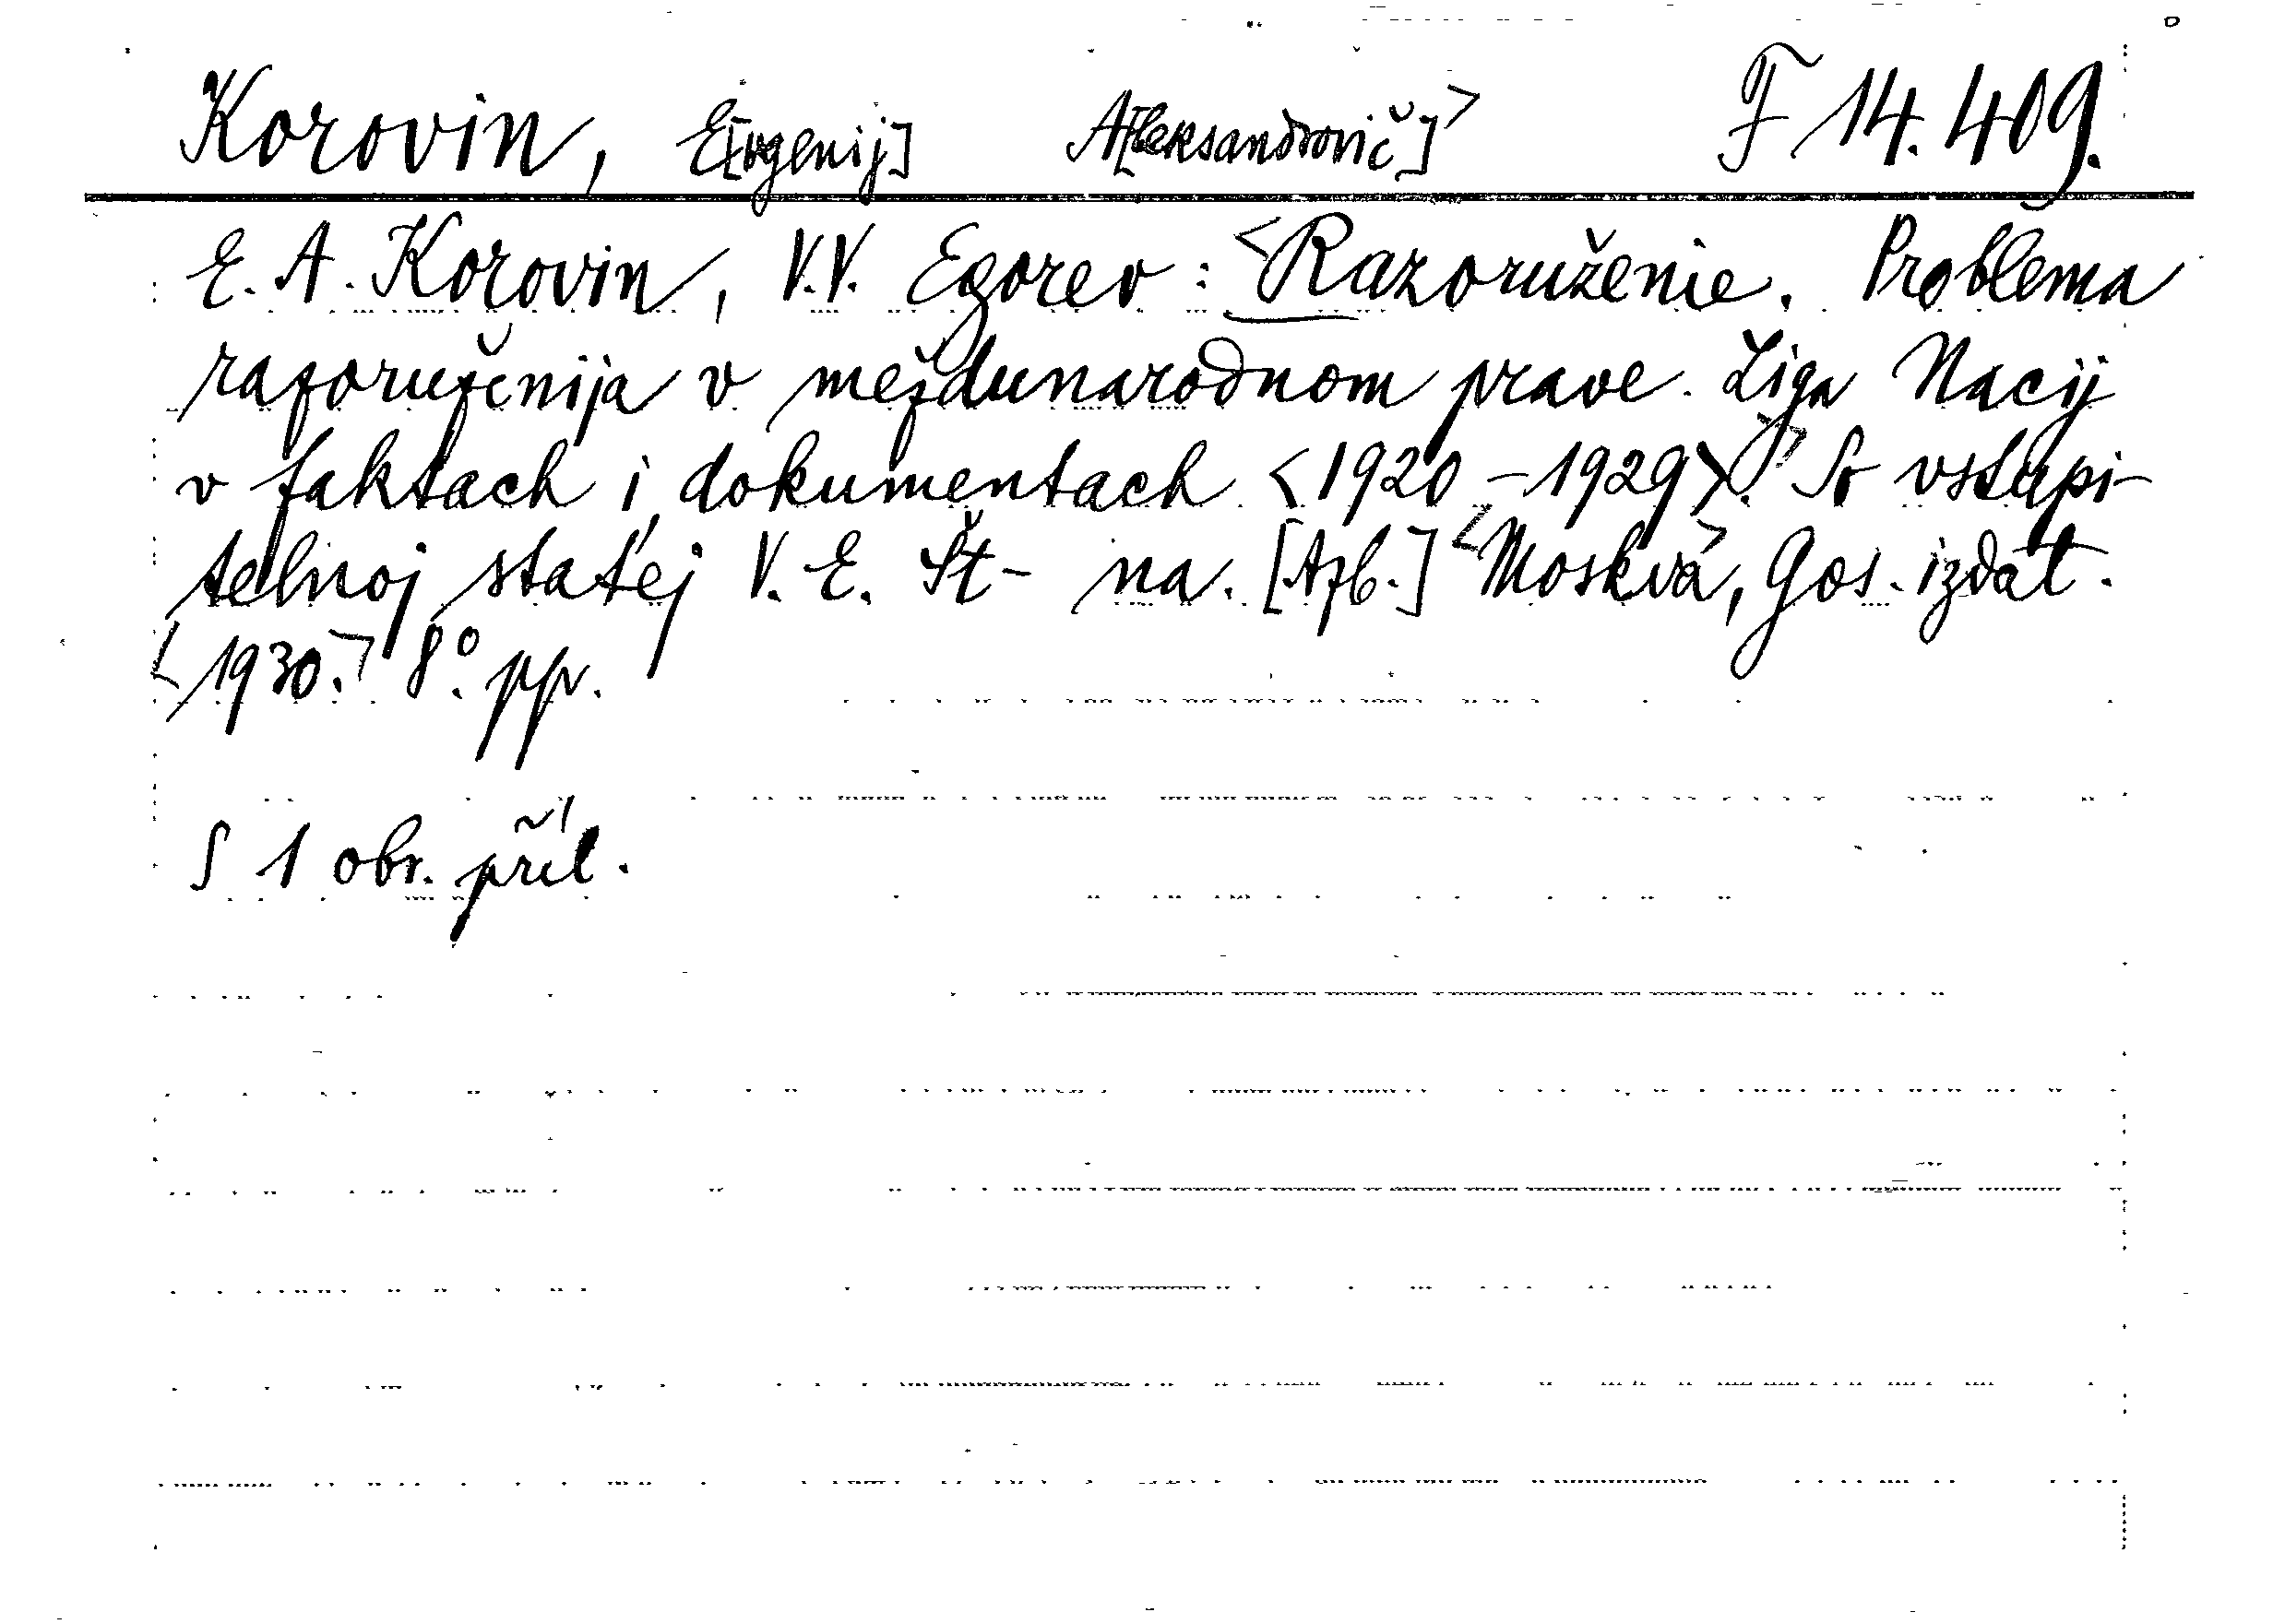 Korovin, E[vgenij] A[leksandrovič]> F 14.409.
E. A. Korovin, V.V. Egorev: <Razoruženie. Problema
razoruženija v meždunarodnom prave. Liga Nacij
v faktach i dokumentach <1920-1929>.> So vstupi-
telnoj staťej V. E. Št-na. [Azb.] <Moskva>, Gos. izdat.
<1930.> 8°. pp.
S 1 obr. příl.